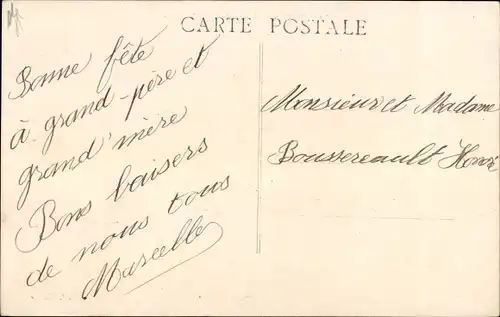 CARTE POSTALE
Bonne fête
à grand-père et
grand'mère
Bons baisers
de nous tous
Marcelle
Monsieur et Madame
Boussereault Honoré